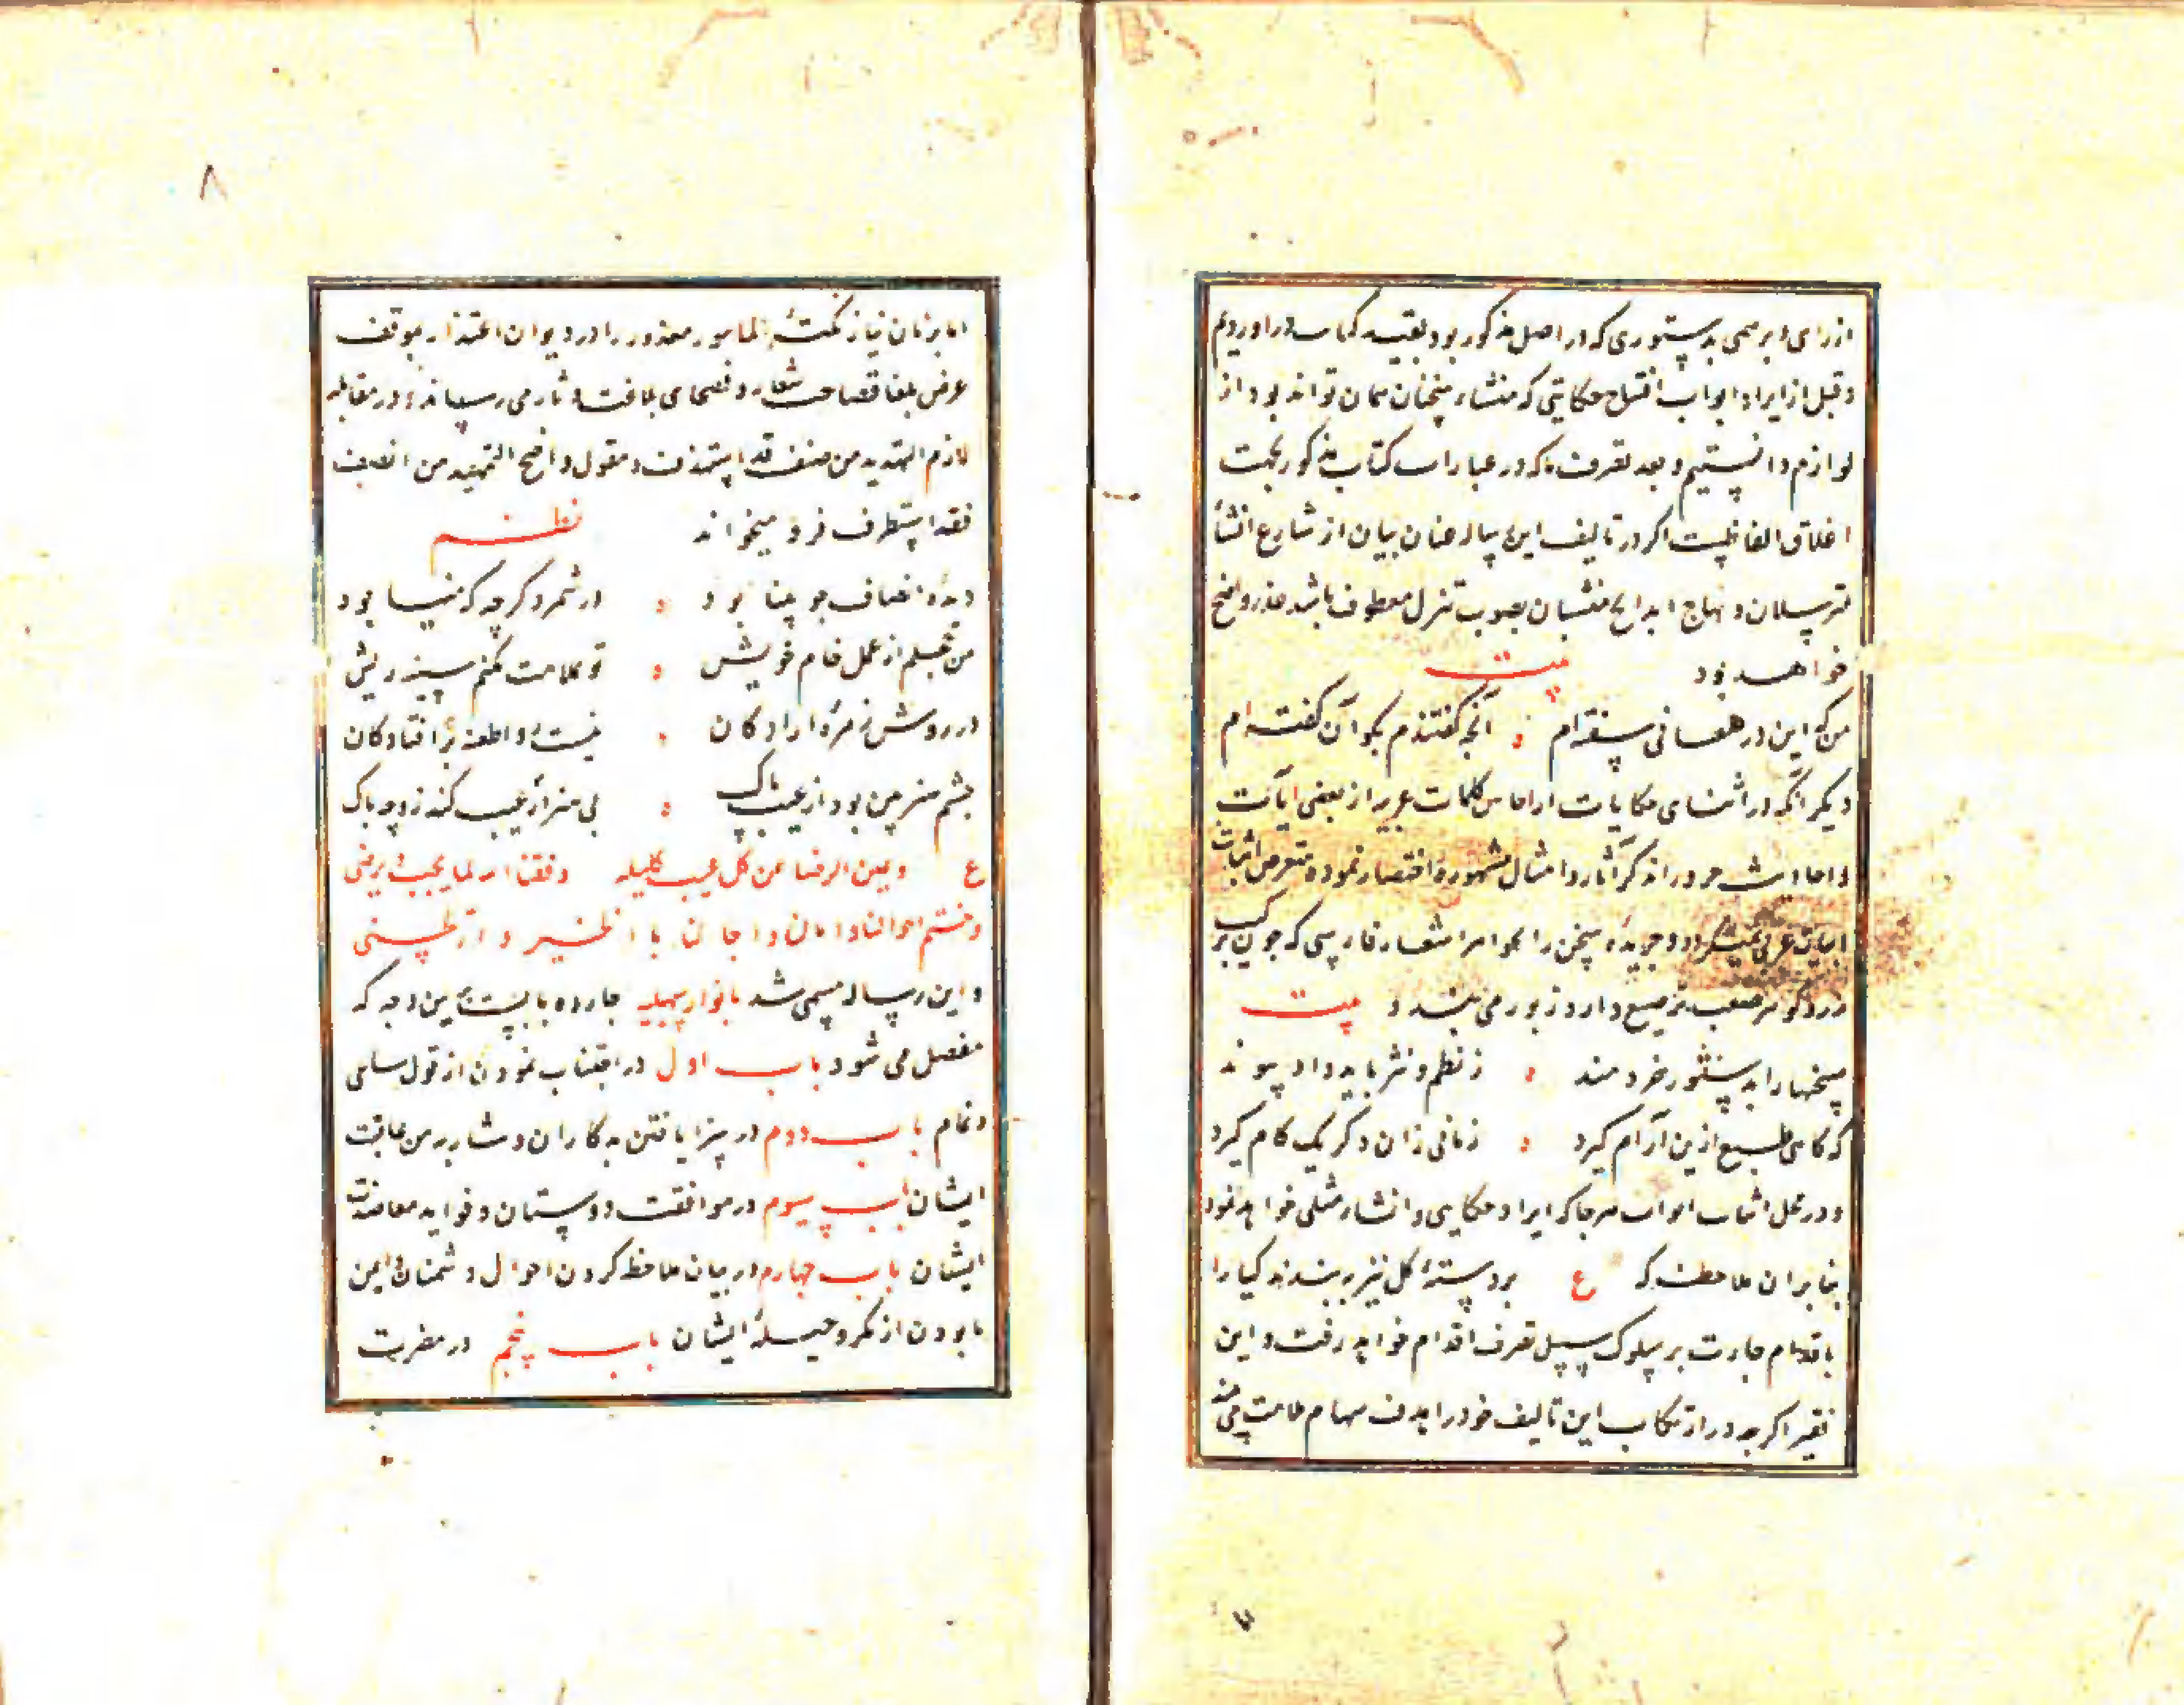 از رای و برهمی بدستوری که در اصل مذکور بود بقید کتابت درآوردیم
و قبل از ایراد ابواب افتتاح حکایتی که منشاء سخنان همان تواند بود از
لوازم دانستیم و بعد تصرف که در عبارات کتاب مذکور بجهت
اغلاق الفاظست اگر در تالیف این رساله عنان بیان از شارع انشأ
مترسلان و منهاج ابداع منشیان بصوب تنزل معطوف باشد عذر واضح
خواهد بود بیت
من که این در معانی سفته‌ام آنچه گفتندم بگو آن گفته‌ام
دیگر آنکه در اثنای حکایات از کلمات عربیه از بعضی آیات
و احادیث ضرور الذکر و آثار و امثال مشهوره اقتصار نموده متعرض اثبات
ابیات عربی نمیگردد و جریده سخن را بجواهر اشعار فارسی که چون ترکیب
زر و گوهر صفت ترصیع دارد زیور می‌بندد بیت
سخنها را بدستور خردمند ز نظم و نثر باید داد پیوند
که گاهی طبع ازین آرام گیرد زمانی زان دگر یک کام گیرد
و در محل اثبات ابواب هرجا که ایراد حکایتی و انشاء مثلی خواهد نمود
بنابران ملاحظه که ع بر دستهٔ گل نیز ببندند گیا را
باقدام جسارت بر سلوک سبیل تصرف اقدام خواهد رفت و این
فقیر اگرچه در ارتکاب این تالیف خود را هدف سهام ملامت می‌بیند
۸
اما بزبان نیاز نکتهٔ المامور معذور را در دیوان اعتذار بموقف
عرض بلغا فصاحت شعار و فصحای بلاغت دثار می‌رساند و در مقابله
لازم التهدید من صنف قد استهدف مقول واضح التمهید من انصف
فقد استطرف فرو میخواند نظم
دیدهٔ انصاف چو بینا بود در شمرد گرچه که مینا بود
من خجلم از عمل خام خویش تو بملامت مکنم سینه ریش
در روش زمرهٔ آزادگان نیست روا طعنه بر افتادگان
چشم هنر بین بود از عیب پاک بی هنر ار عیب کند زو چه باک
ع و عین الرضا عن کل عیب کلیله وفقنا الله لما یحب و یرضی
و ختم احوالنا و امالنا و اجالنا بالخیر و الحسنی
و این رساله مسمی شد بانوار سهیلی چهارده بابست برین وجه که
مفصل می شود باب اول در اجتناب نمودن از قول ساعی
و نمام باب دوم در سزا یافتن بدکاران و شآمت عاقبت
ایشان باب سیوم در موافقت دوستان و فواید معاضدت
ایشان باب چهارم در بیان ملاحظه کردن احوال دشمنان و ایمن
نابودن از مکر و حیلهٔ ایشان باب پنجم در مضرت